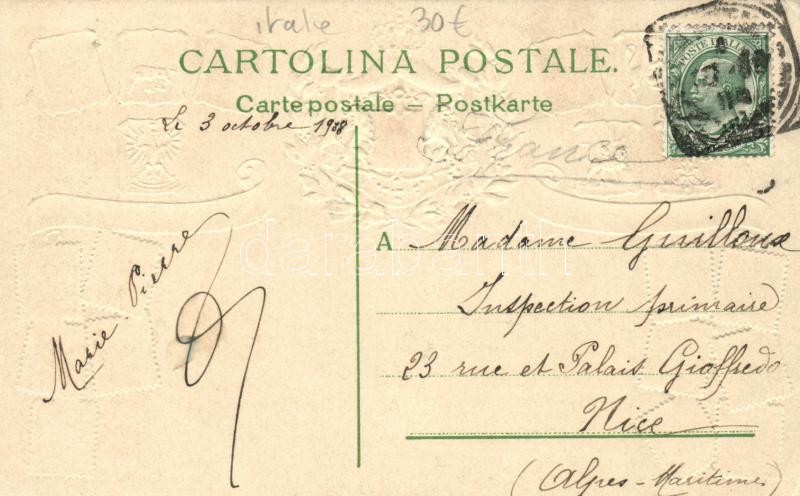 italie 30€
CARTOLINA POSTALE.
Carte postale – Postkarte
Le 3 octobre 1908
France
POSTE ITALIANE
Marie Pierre
A Madame Guilloux
Inspection primaire
23 rue et Palais Gioffredo
Nice
(Alpes-Maritimes)
darabanth